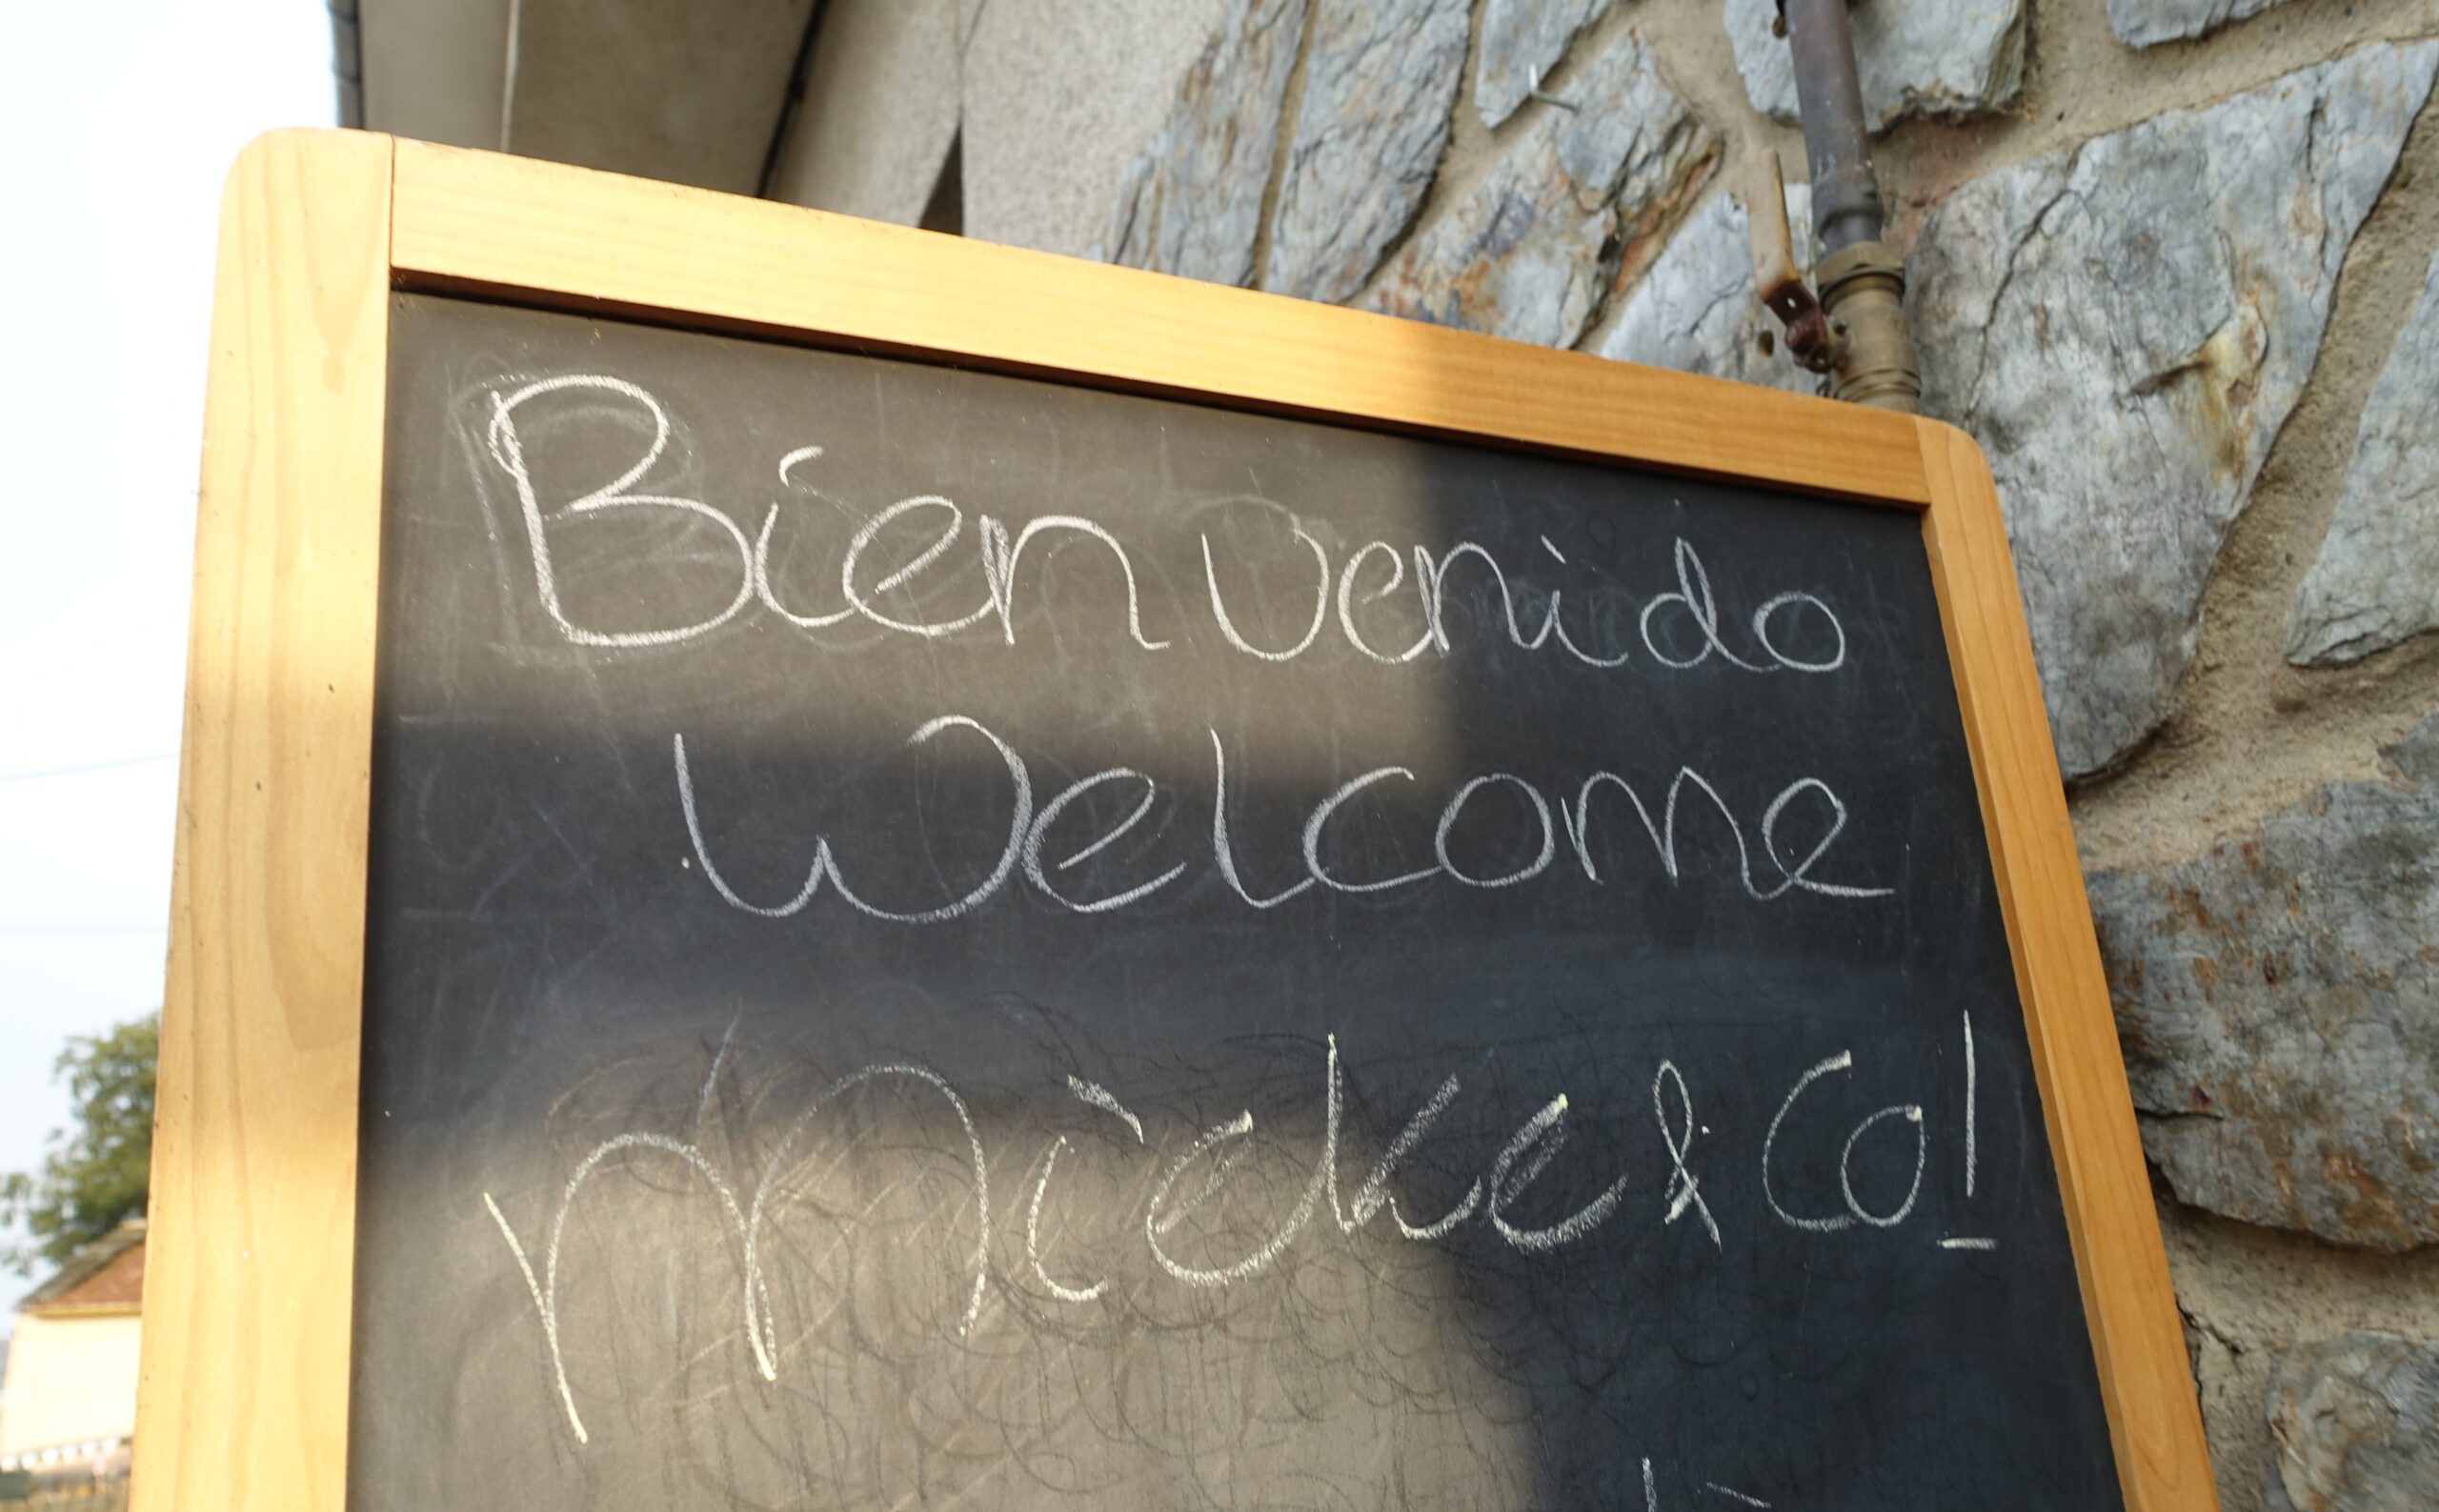 Bienvenido
Welcome
Micke & Co!